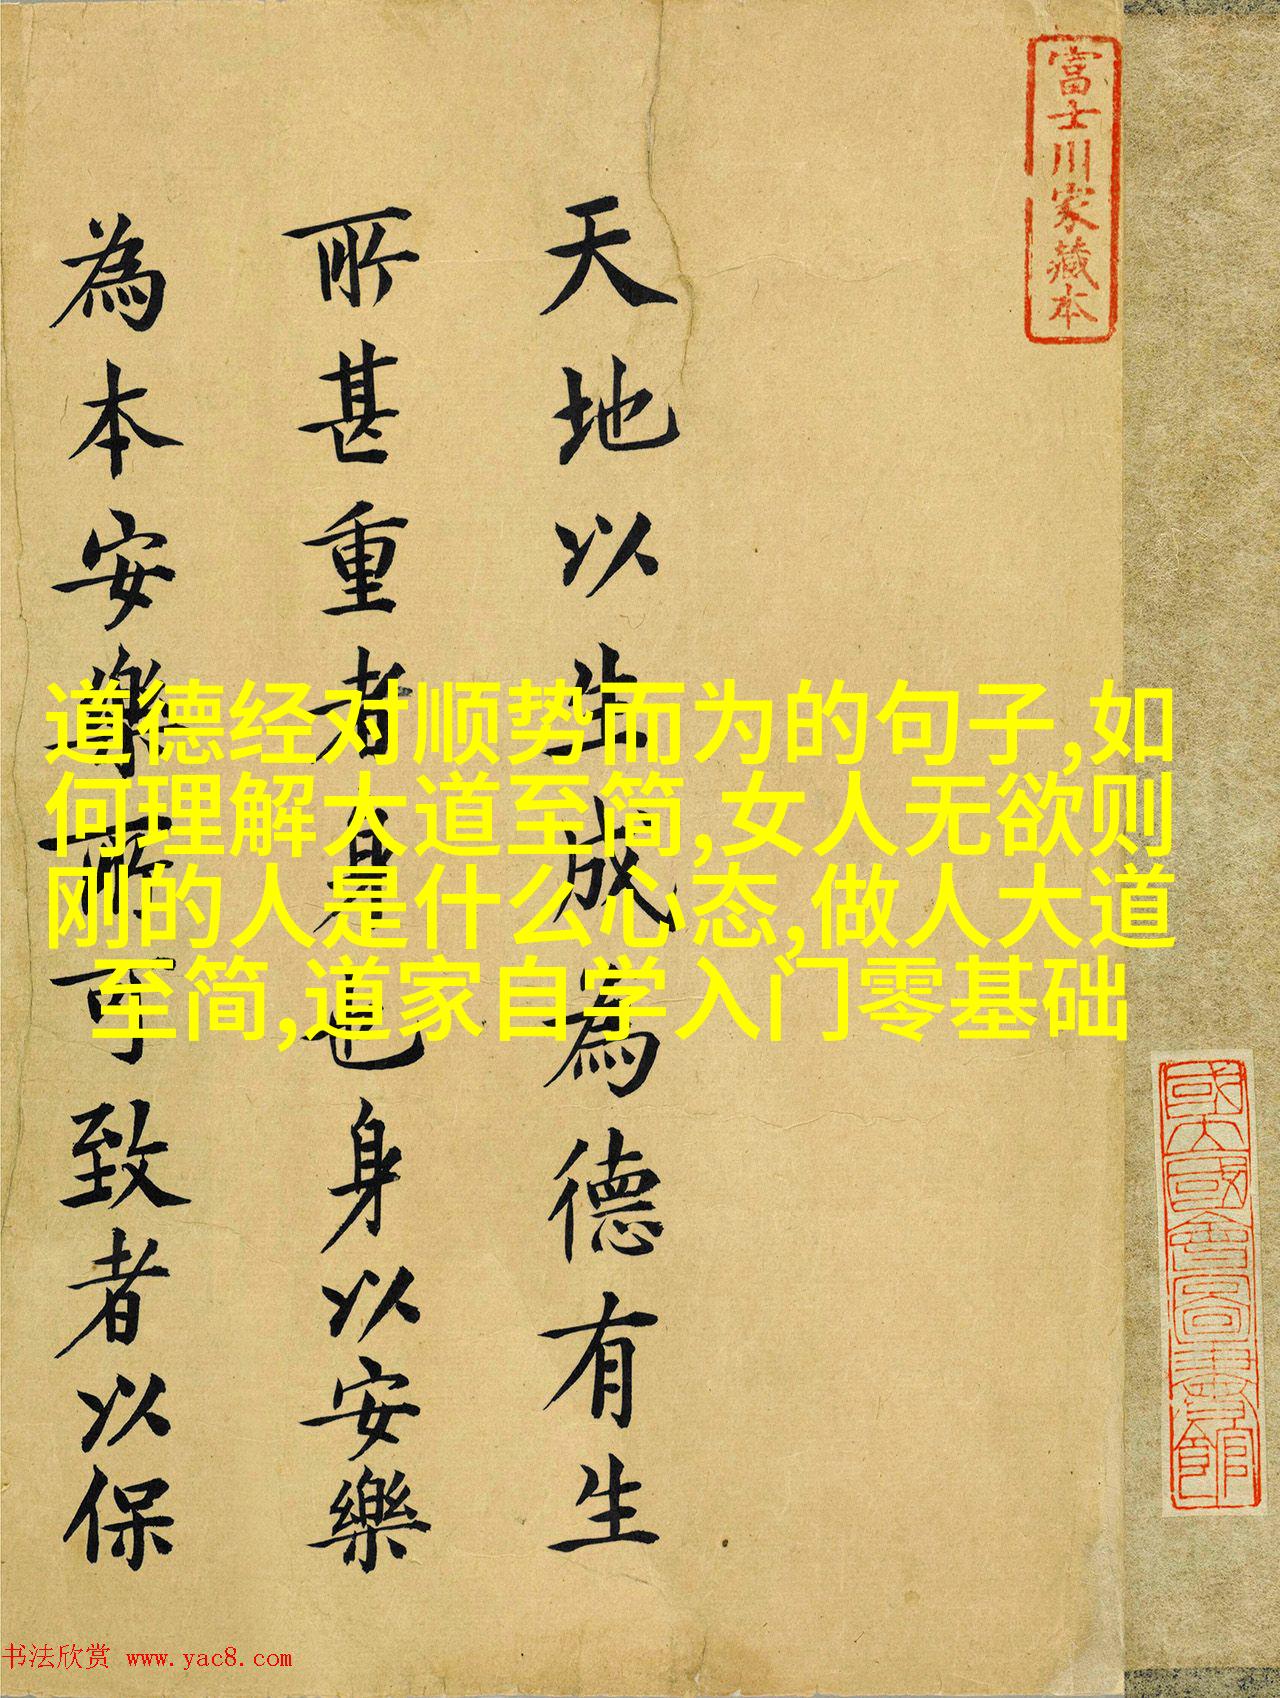 富士川家藏本
天地以生成為德有生
所甚重者身也身以安樂
為本安樂所可致者以保
道德经对顺势而为的句子,如
何理解大道至简,女人无欲则
刚的人是什么心态,做人大道
至简,道家自学入门零基础
國立國會圖書館
书法欣赏 www.yac8.com